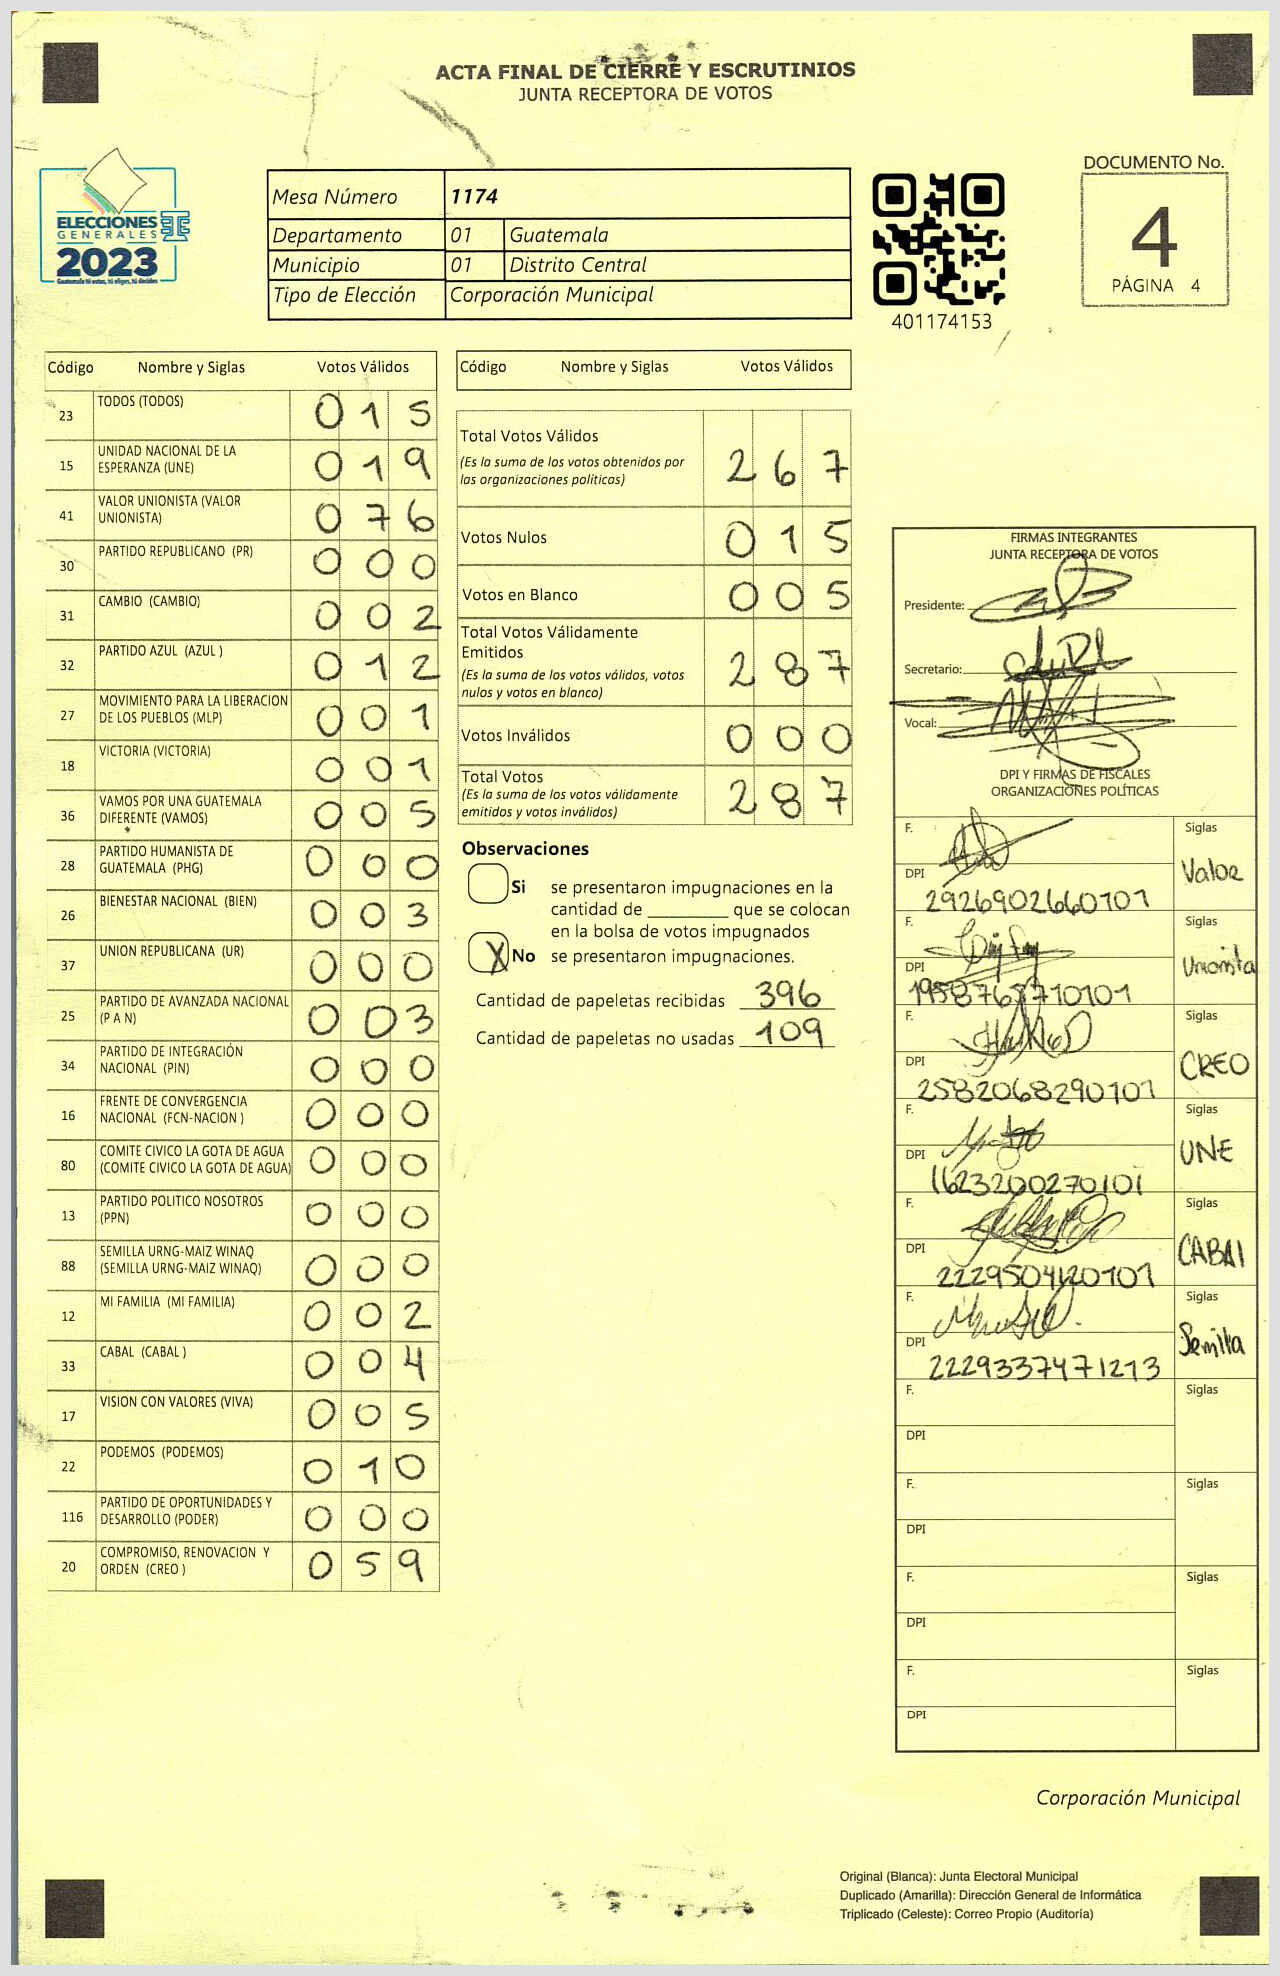 ACTA FINAL DE CIERRE Y ESCRUTINIOS
JUNTA RECEPTORA DE VOTOS
ELECCIONES
GENERALES
2023
Guatemala tú votas, tú eliges, tú decides
Mesa Número 1174
Departamento 01 Guatemala
Municipio 01 Distrito Central
Tipo de Elección Corporación Municipal
401174153
DOCUMENTO No.
4
PÁGINA 4
Código Nombre y Siglas Votos Válidos
23 TODOS (TODOS) 0 1 5
15 UNIDAD NACIONAL DE LA
ESPERANZA (UNE) 0 1 9
41 VALOR UNIONISTA (VALOR
UNIONISTA) 0 7 6
30 PARTIDO REPUBLICANO (PR) 0 0 0
31 CAMBIO (CAMBIO) 0 0 2
32 PARTIDO AZUL (AZUL ) 0 1 2
27 MOVIMIENTO PARA LA LIBERACION
DE LOS PUEBLOS (MLP) 0 0 1
18 VICTORIA (VICTORIA) 0 0 1
36 VAMOS POR UNA GUATEMALA
DIFERENTE (VAMOS) 0 0 5
28 PARTIDO HUMANISTA DE
GUATEMALA (PHG) 0 0 0
26 BIENESTAR NACIONAL (BIEN) 0 0 3
37 UNION REPUBLICANA (UR) 0 0 0
25 PARTIDO DE AVANZADA NACIONAL
(P A N) 0 0 3
34 PARTIDO DE INTEGRACIÓN
NACIONAL (PIN) 0 0 0
16 FRENTE DE CONVERGENCIA
NACIONAL (FCN-NACION ) 0 0 0
80 COMITE CIVICO LA GOTA DE AGUA
(COMITE CIVICO LA GOTA DE AGUA) 0 0 0
13 PARTIDO POLITICO NOSOTROS
(PPN) 0 0 0
88 SEMILLA URNG-MAIZ WINAQ
(SEMILLA URNG-MAIZ WINAQ) 0 0 0
12 MI FAMILIA (MI FAMILIA) 0 0 2
33 CABAL (CABAL ) 0 0 4
17 VISION CON VALORES (VIVA) 0 0 5
22 PODEMOS (PODEMOS) 0 1 0
116 PARTIDO DE OPORTUNIDADES Y
DESARROLLO (PODER) 0 0 0
20 COMPROMISO, RENOVACION Y
ORDEN (CREO ) 0 5 9
Código Nombre y Siglas Votos Válidos
Total Votos Válidos
(Es la suma de los votos obtenidos por
las organizaciones políticas) 2 6 7
Votos Nulos 0 1 5
Votos en Blanco 0 0 5
Total Votos Válidamente
Emitidos
(Es la suma de los votos válidos, votos
nulos y votos en blanco) 2 8 7
Votos Inválidos 0 0 0
Total Votos
(Es la suma de los votos válidamente
emitidos y votos inválidos) 2 8 7
Observaciones
Si se presentaron impugnaciones en la
cantidad de ________ que se colocan
en la bolsa de votos impugnados
X No se presentaron impugnaciones.
Cantidad de papeletas recibidas 396
Cantidad de papeletas no usadas 109
FIRMAS INTEGRANTES
JUNTA RECEPTORA DE VOTOS
Presidente:
Secretario:
Vocal:
DPI Y FIRMAS DE FISCALES
ORGANIZACIONES POLÍTICAS
F. Siglas
Valor
DPI 2926902660101
F. Siglas
Unionista
DPI
F. Siglas
CREO
DPI 2582068290101
F. Siglas
UNE
DPI 1623200270101
F. Siglas
CABAl
DPI 2229504120101
F. Siglas
Semilla
DPI 2229337471213
F. Siglas
DPI
F. Siglas
DPI
F. Siglas
DPI
F. Siglas
DPI
Corporación Municipal
Original (Blanca): Junta Electoral Municipal
Duplicado (Amarilla): Dirección General de Informática
Triplicado (Celeste): Correo Propio (Auditoría)